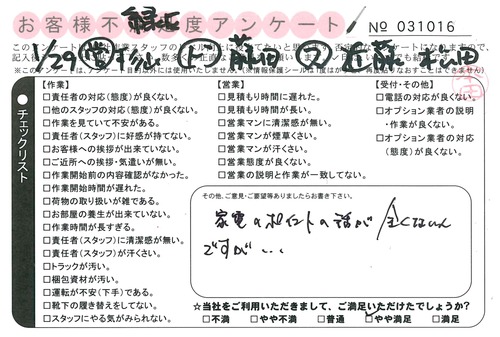 お客様不満足度アンケート
No 031016
1/29
※このアンケートは、アンケート目的以外には使用いたしません。(※情報保護シールは1度はがすと再度貼りなおすことはできません)
チェックリスト
【作業】
□責任者の対応(態度)が良くない。
□他のスタッフの対応(態度)が良くない。
□作業を見ていて不安がある。
□責任者(スタッフ)に好感が持てない。
□お客様への挨拶が出来ていない。
□ご近所への挨拶・気遣いが無い。
□作業開始前の内容確認がなかった。
□作業開始時間が遅れた。
□荷物の取り扱いが雑である。
□お部屋の養生が出来ていない。
□作業時間が長すぎる。
□責任者(スタッフ)に清潔感が無い。
□責任者(スタッフ)が汗くさい。
□トラックが汚い。
□梱包資材が汚い。
□運転が不安(下手)である。
□靴下の履き替えをしてない。
□スタッフにやる気がみられない。
【営業】
□見積もり時間に遅れた。
□見積もり時間が長い。
□営業マンに清潔感が無い。
□営業マンが煙草くさい。
□営業マンが汗くさい。
□営業態度が良くない。
□営業の説明と作業が一致してない。
【受付・その他】
□電話の対応が良くない。
□オプション業者の説明
・作業が良くない。
□オプション業者の対応
(態度)が良くない。
その他、ご意見・ご要望等ありましたらお書き下さい。
家電のポイントの話が
ですが...
☆当社をご利用いただきまして、ご満足いただけたでしょうか?
□不満 □やや不満 □普通 □やや満足 □満足